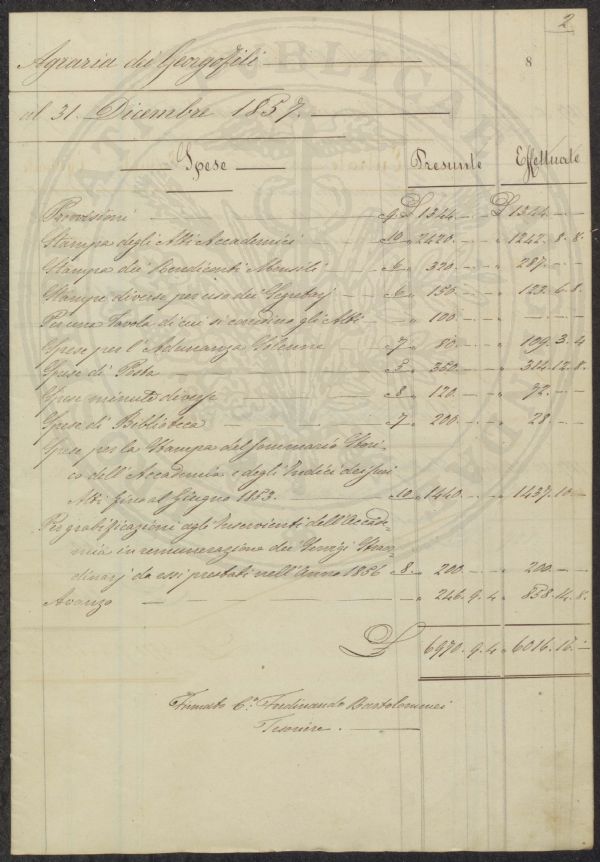 2
Agraria dei Georgofili
8
al 31. Dicembre 1857.
Spese Presunte Effettuate
Provvisioni 9 £ 1344. £ 1344.
Stampa degli Atti Accademici 10 " 2420. " 1242. 8. 8.
Stampa dei Rendiconti Mensili 6 " 320. " 287.
Stampe diverse per uso dei Segretarj 6 " 150. " 123. 6. 8.
Per una Tavola di cui si corredino gli Atti " 100.
Spese per l'Adunanza Solenne 7 " 80. " 109. 3. 4
Spese di Posta 5 " 350. " 314. 12. 8.
Spese minute diverse 8 " 120. " 72.
Spese di Biblioteca 7 " 200. " 28.
Spese per la Stampa del Sommario Stori-
co dell'Accademia e degli Indici dei suoi
Atti fino al Giugno 1853. 10 " 1440. " 1437. 10.
Per gratificazioni agli Inservienti dell'Accade-
mia in remunerazione dei Servigi Straor-
dinarj da essi prestati nell'Anno 1856 8. " 200. " 200.
Avanzo " 246. 9. 4 " 858. 14. 8.
£ 6970. 9. 4 " 6016. 16.
Firmato C.e Ferdinando Bartolommei
Tesoriere.